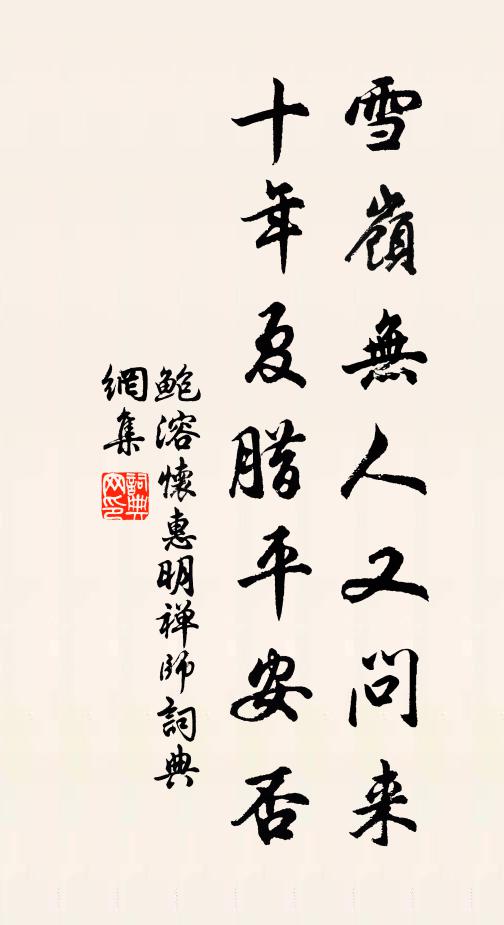 雪嶺無人又問来
十年夏腊平安否
鮑溶懷惠明禅师詞典
網集
詞典
网印